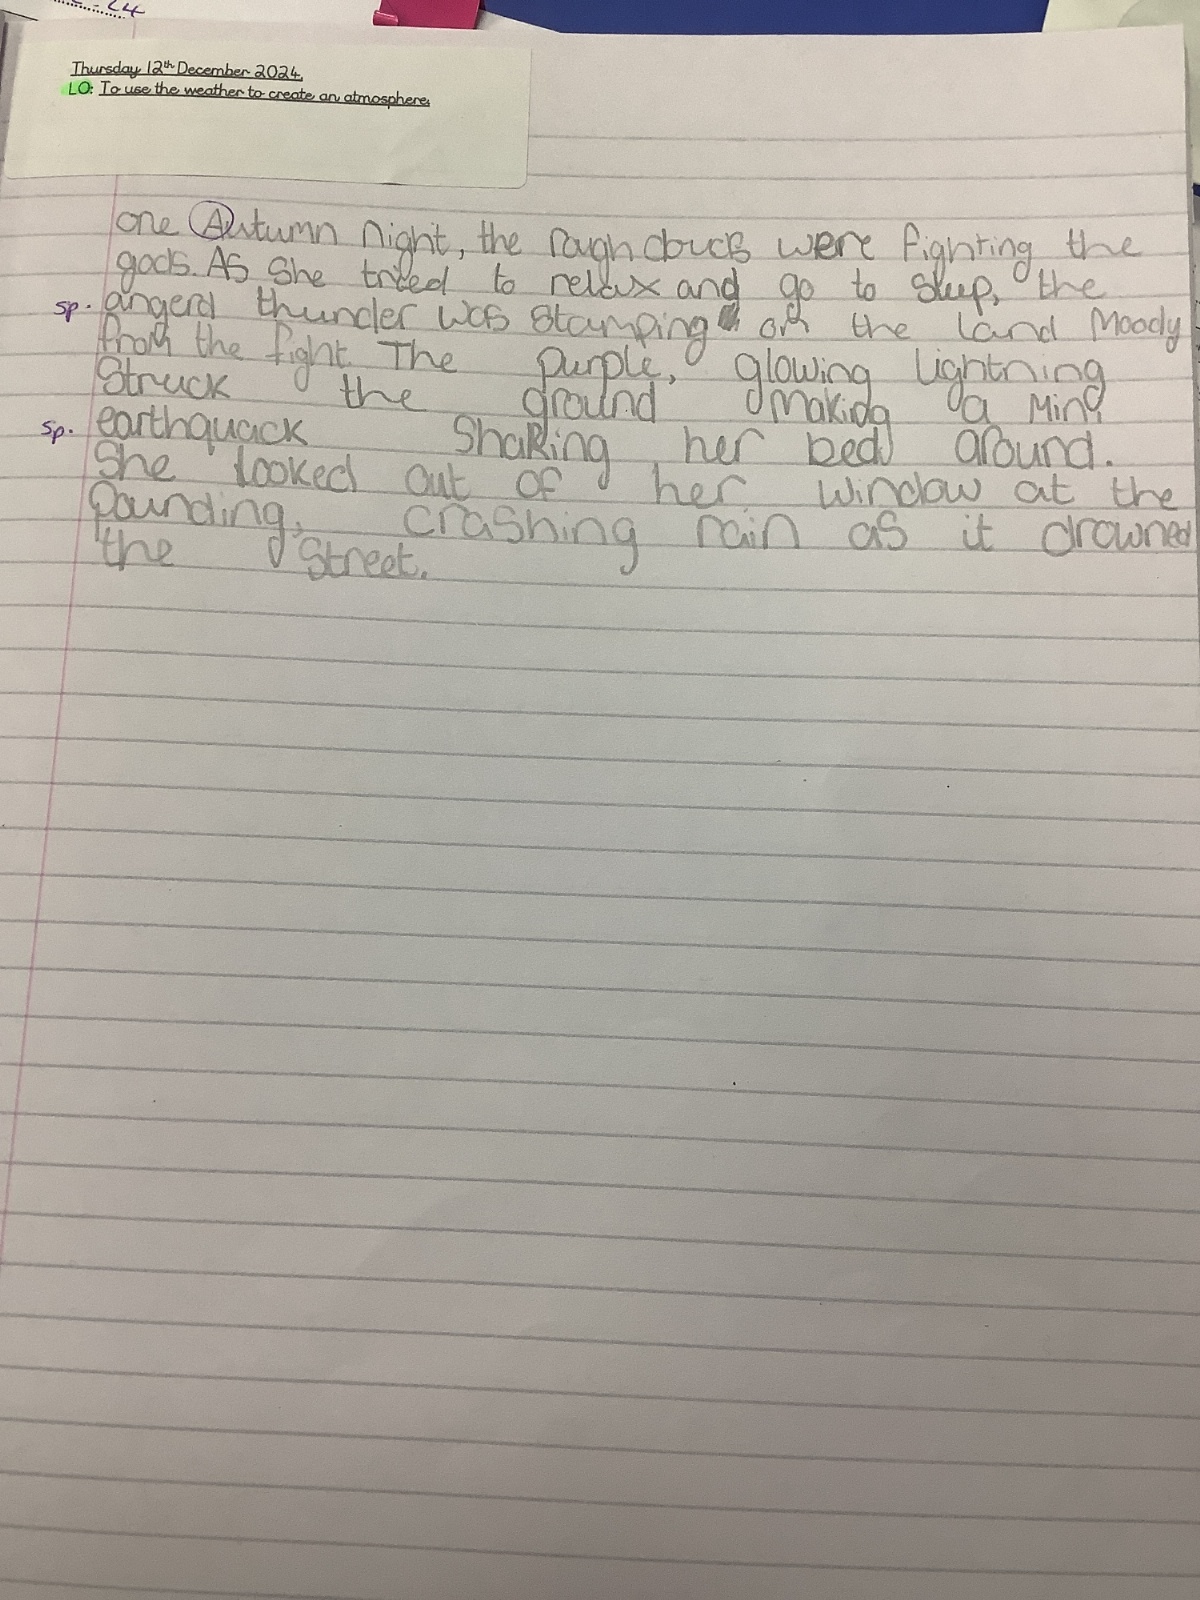 Thursday 12th December 2024.
LO: To use the weather to create an atmosphere.
one Autumn night, the rough clouds were fighting the
gods. As She tried to relax and go to sleep, the
sp. angerd thunder was stamping on the land Moody
from the fight The purple, glowing lightning
Struck the ground making a Mini
sp. earthquack Shaking her bed around.
She looked out of her window at the
Pounding, crashing rain as it drowned
the Street.